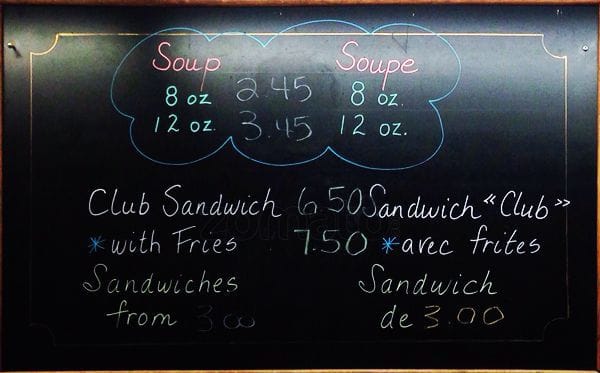 Soup Soupe
8 oz 2.45 8 oz.
12 oz. 3.45 12 oz.
Club Sandwich 6.50 Sandwich "Club"
*with Fries 7.50 *avec frites
Sandwiches Sandwich
from 3.00 de 3.00